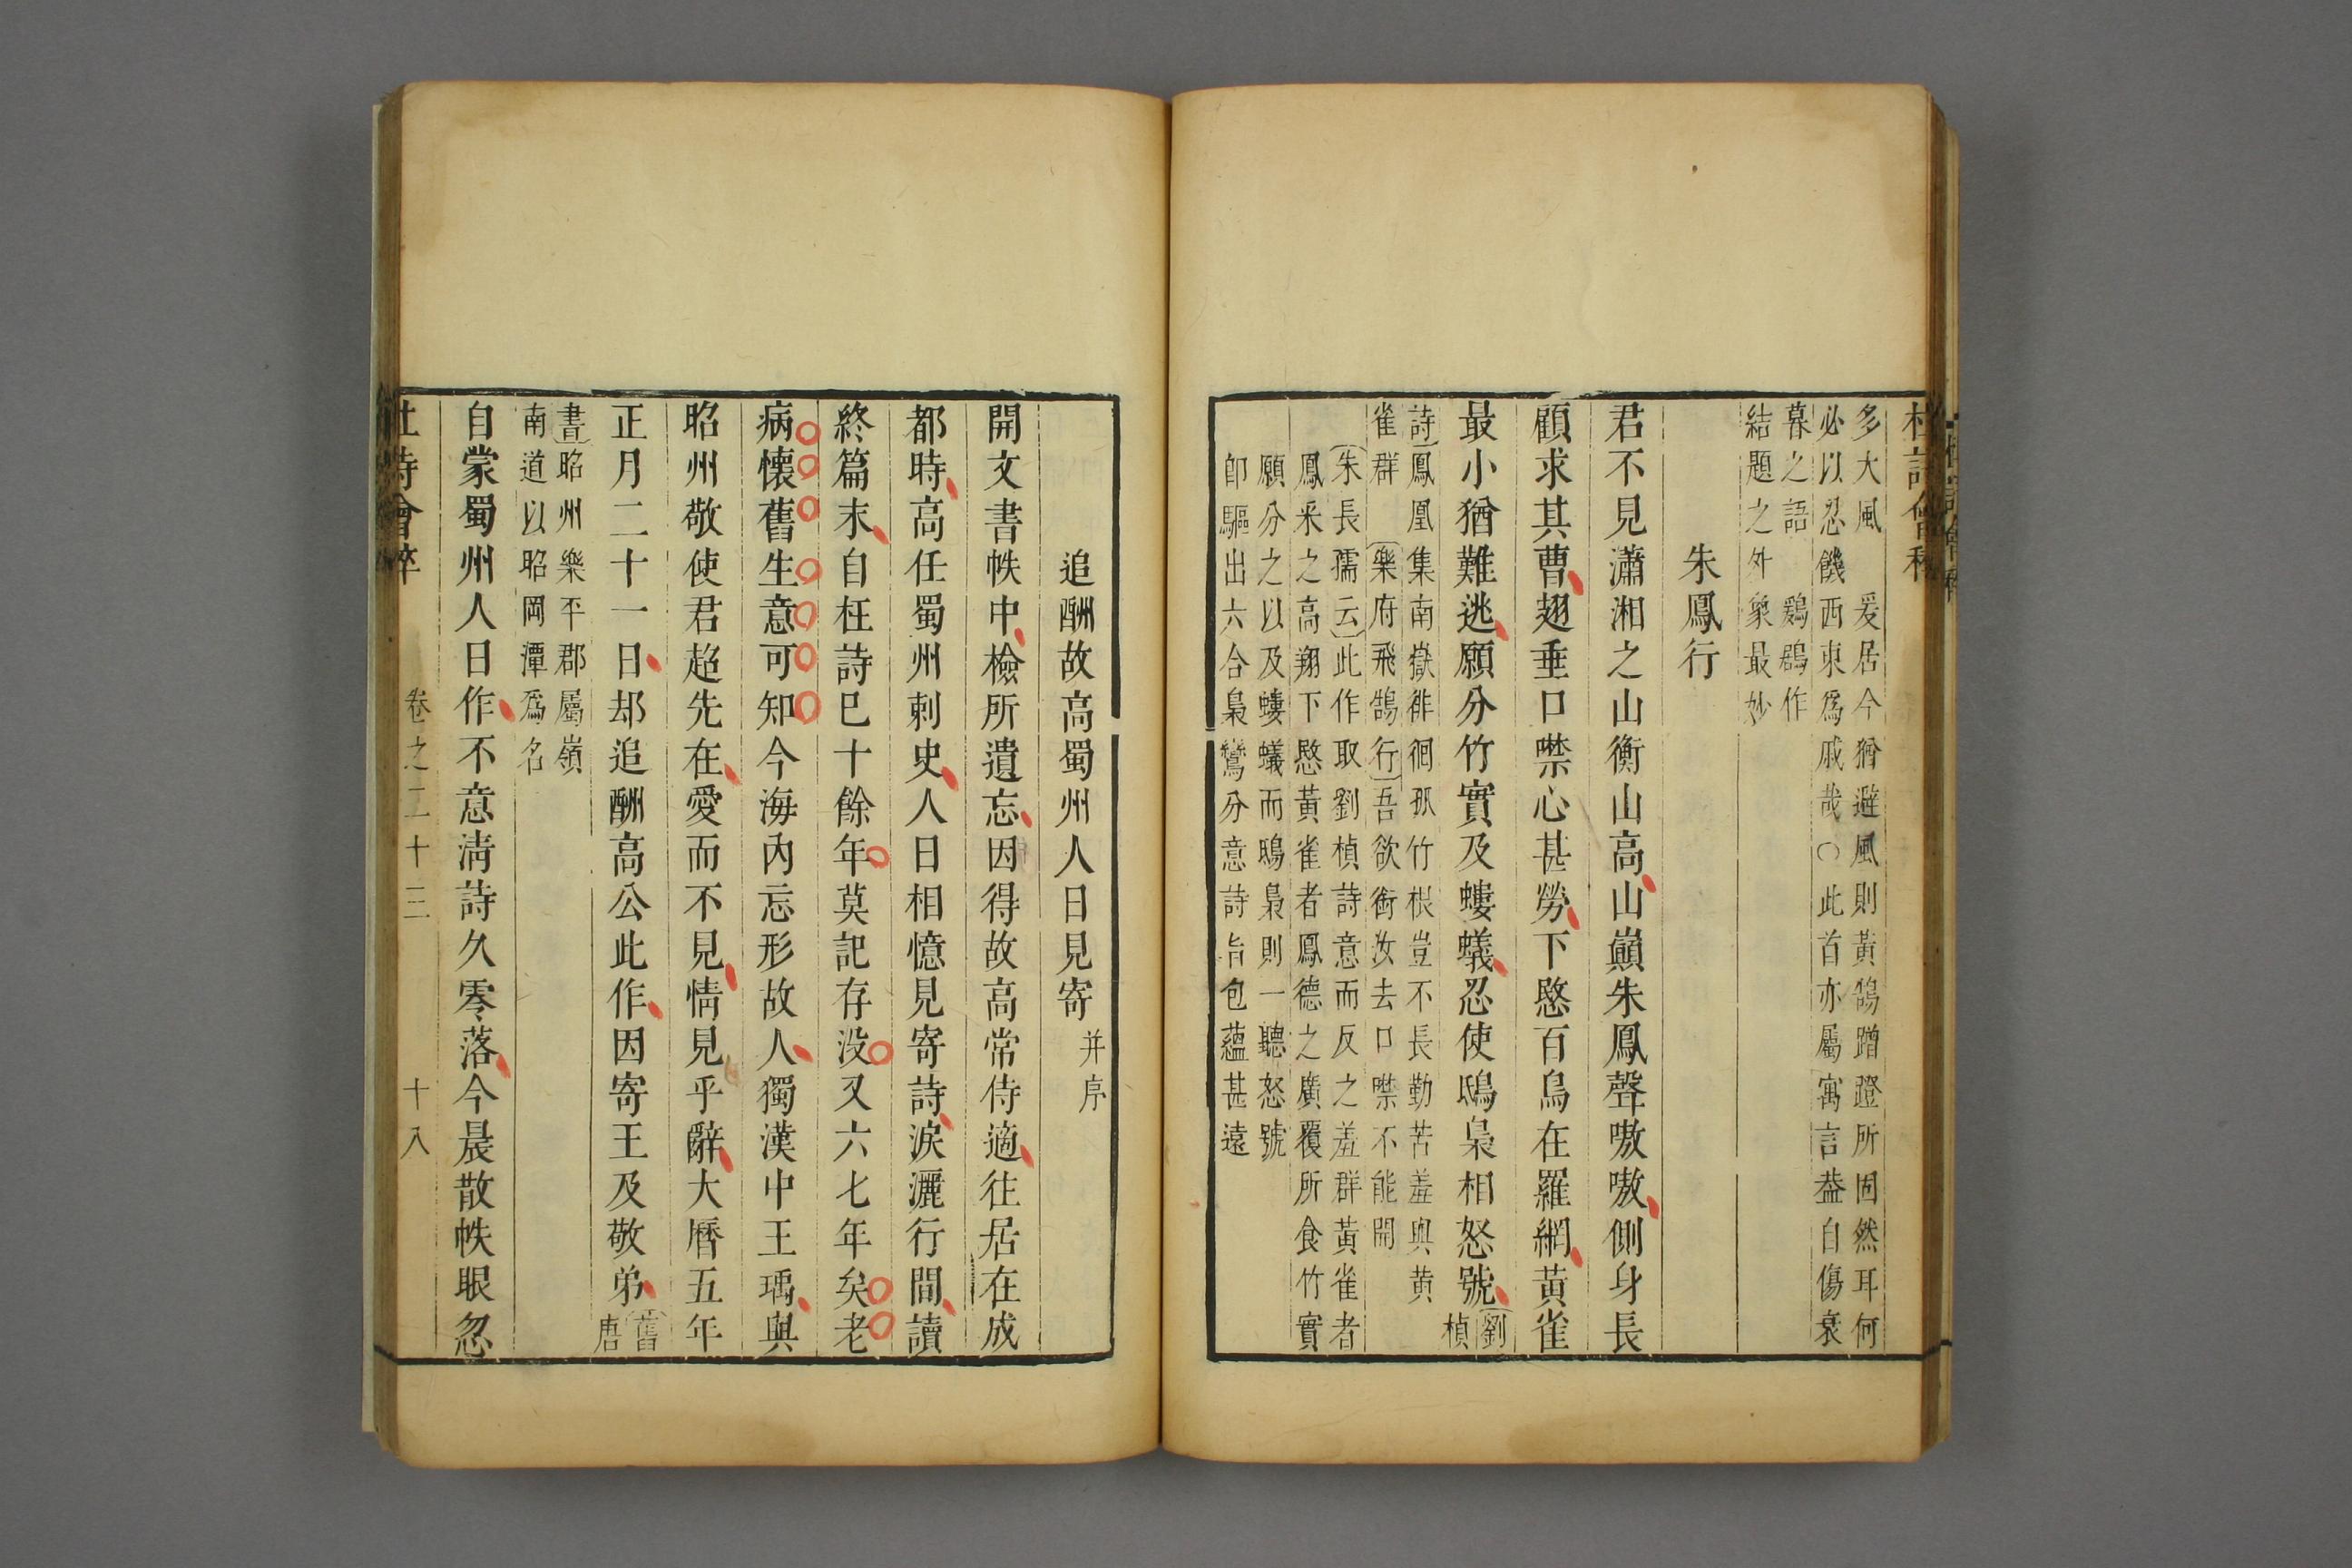 杜詩會稡
多大風　爰居今猶避風則黃鵠蹭蹬所固然耳何
必以忍饑西東爲戚哉○此首亦屬寓言葢自傷衰
暮之語　鶤鷄作
結題之外象最妙
朱鳳行
君不見瀟湘之山衡山高山巔朱鳳聲嗷嗷側身長
顧求其曹翅垂口噤心甚勞下愍百鳥在羅網黃雀
最小猶難逃願分竹實及螻蟻忍使鴟梟相怒號劉
楨
詩鳳凰集南嶽徘徊孤竹根豈不長勤苦羞與黃
雀群　樂府飛鵠行吾欲銜汝去口噤不能開
朱長孺云此作取劉楨詩意而反之羞群黃雀者
鳳采之高翔下愍黃雀者鳳德之廣覆所食竹實
願分之以及螻蟻而鴟梟則一聽怒號
卽驅出六合梟鸞分意詩旨包蘊甚遠
追酬故高蜀州人日見寄并序
開文書帙中檢所遺忘因得故高常侍適往居在成
都時高任蜀州刺史人日相憶見寄詩淚灑行間讀
終篇末自枉詩已十餘年莫記存沒又六七年矣老
病懷舊生意可知今海內忘形故人獨漢中王瑀與
昭州敬使君超先在愛而不見情見乎辭大曆五年
正月二十一日却追酬高公此作因寄王及敬弟舊
唐
書昭州樂平郡屬嶺
南道以昭岡潭爲名
自蒙蜀州人日作不意清詩久零落今晨散帙眼忽
杜詩會稡　卷之二十三　十八